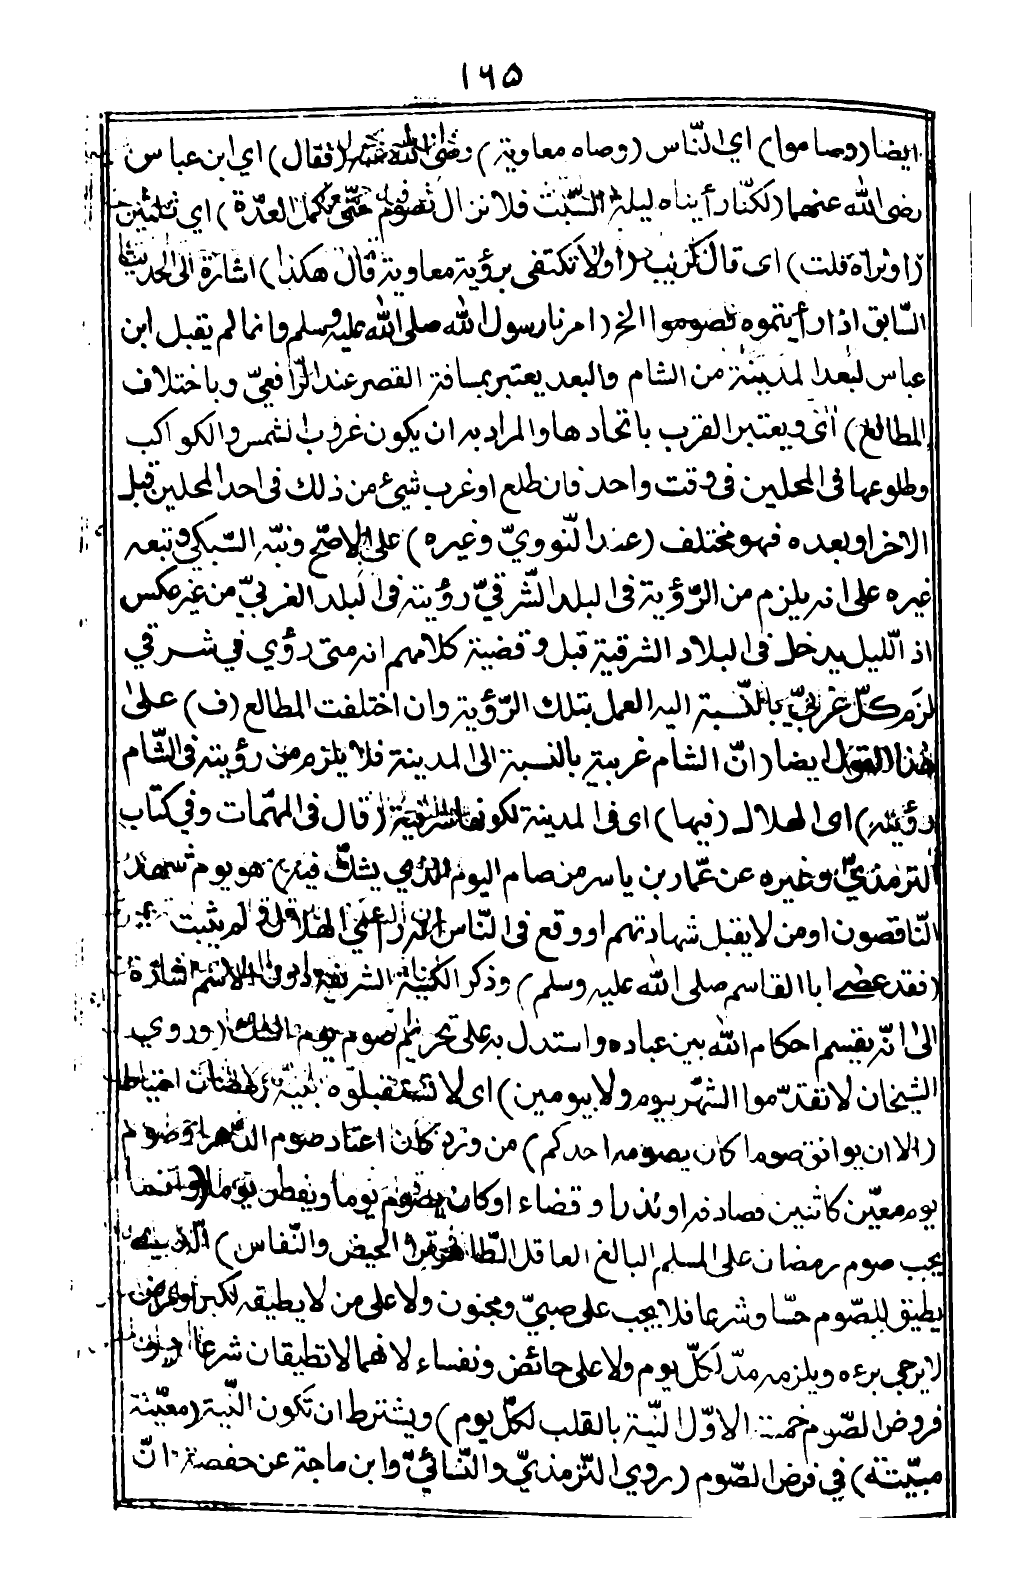 ١٦٥
ايضا (وصاموا) اي النّاس (وصاه معاوية) رضى الله عنه (فقال) اي ابن عباس
رضى الله عنهما (لكنّا رأيناه ليلة السّبت فلا نزال نصوم حتّى نكمل العدّة) اي ثلثين
(او نراه قلت) اى قال كريب (او لا تكتفى برؤية معاوية قال هكذا) اشارة الى الحديث
السّابق اذا رأيتموه فصوموا الخ (امرنا رسول الله صلى الله عليه وسلم وانما لم يقبل ابن
عباس لبعد المدينة من الشام والبعد يعتبر بمسافة القصر عند الرّافعيّ وباختلاف
المطالع) اى ويعتبر القرب باتحادها والمراد به ان يكون غروب الشمس والكواكب
وطلوعها فى المحلين فى وقت واحد فان طلع او غرب شيئ من ذلك فى احد المحلين قبل
الاخر او بعده فهو مختلف (عند النّوويّ وغيره) على الاصّح ونبّه السّبكي وتبعه
غيره على انه يلزم من الرّؤية فى البلد الشّرقيّ رؤيته فى البلد الغربيّ من غير عكس
اذ الّليل يدخل فى البلاد الشرقية قبل وقضية كلامهم انه متى رؤي في شرقي
لزم كلّ غربيّ بالنّسبة اليه العمل بتلك الرّؤية وان اختلفت المطالع (ف) على
هذا القول ايضا (انّ الشام غربية بالنسبة الى المدينة فلا يلزم من رؤيته فى الشّام
رؤيته) اى الهلال (فيها) اى فى المدينة لكونها شرقية (قال فى المهمّات وفي كتاب
الترمذيّ وغيره عن عمّار بن ياسر من صام اليوم الذي يشكّ فيه) هو يوم شهد
النّاقصون او من لا يقبل شهادتهم او وقع فى النّاس الهلال لم يثبت
(فقد عصى ابا القاسم صلى الله عليه وسلم) وذكر الكنية الشريفة دون الاسم اشارة
الى انّه يقسم احكام الله بين عباده واستدل به على تحريم صوم يوم الشك (وروي
الشيخان لا تقدّموا الشّهر بيوم ولا بيومين) اى لا تستقبلوه بنيّة رمضان احتياطا
(الا ان يوافق صوما كان يصومه احدكم) من ورد كان اعتاد صوم الدّهر او صوم
يوم معيّن كاثنين فصادفه او نذر او قضاء او كان يصوم يوما ويفطر يوما (وانما
يجب صوم رمضان على المسلم البالغ العاقل الطّاهر من الحيض والنّفاس) الذي
يطيق للصّوم حسّا وشرعا فلا يجب على صبيّ ومجنون ولا على من لا يطيقه لكبر او مرض
لا يرجى برءه ويلزمه مدّ لكلّ يوم ولا على حائض ونفساء لانهما لا تطيقان شرعا
فروض الصّوم خمسة الاوّل النيّة بالقلب لكلّ يوم) ويشترط ان تكون النّية (معيّنة
مبيّتة) في فرض الصّوم (روي التّرمذيّ والنّسائيّ وابن ماجة عن حفصة انّ